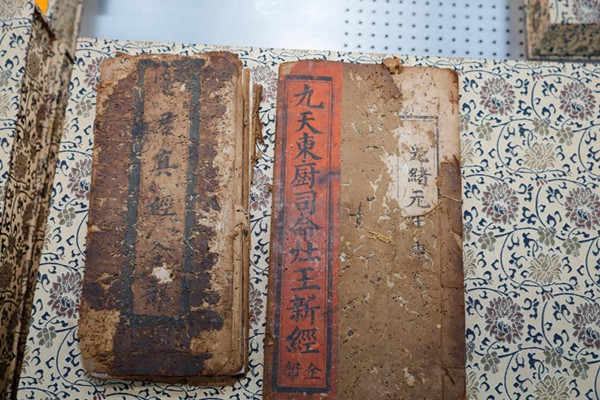 光緒元年
九天東厨司命灶王新經
全部
君真經全部